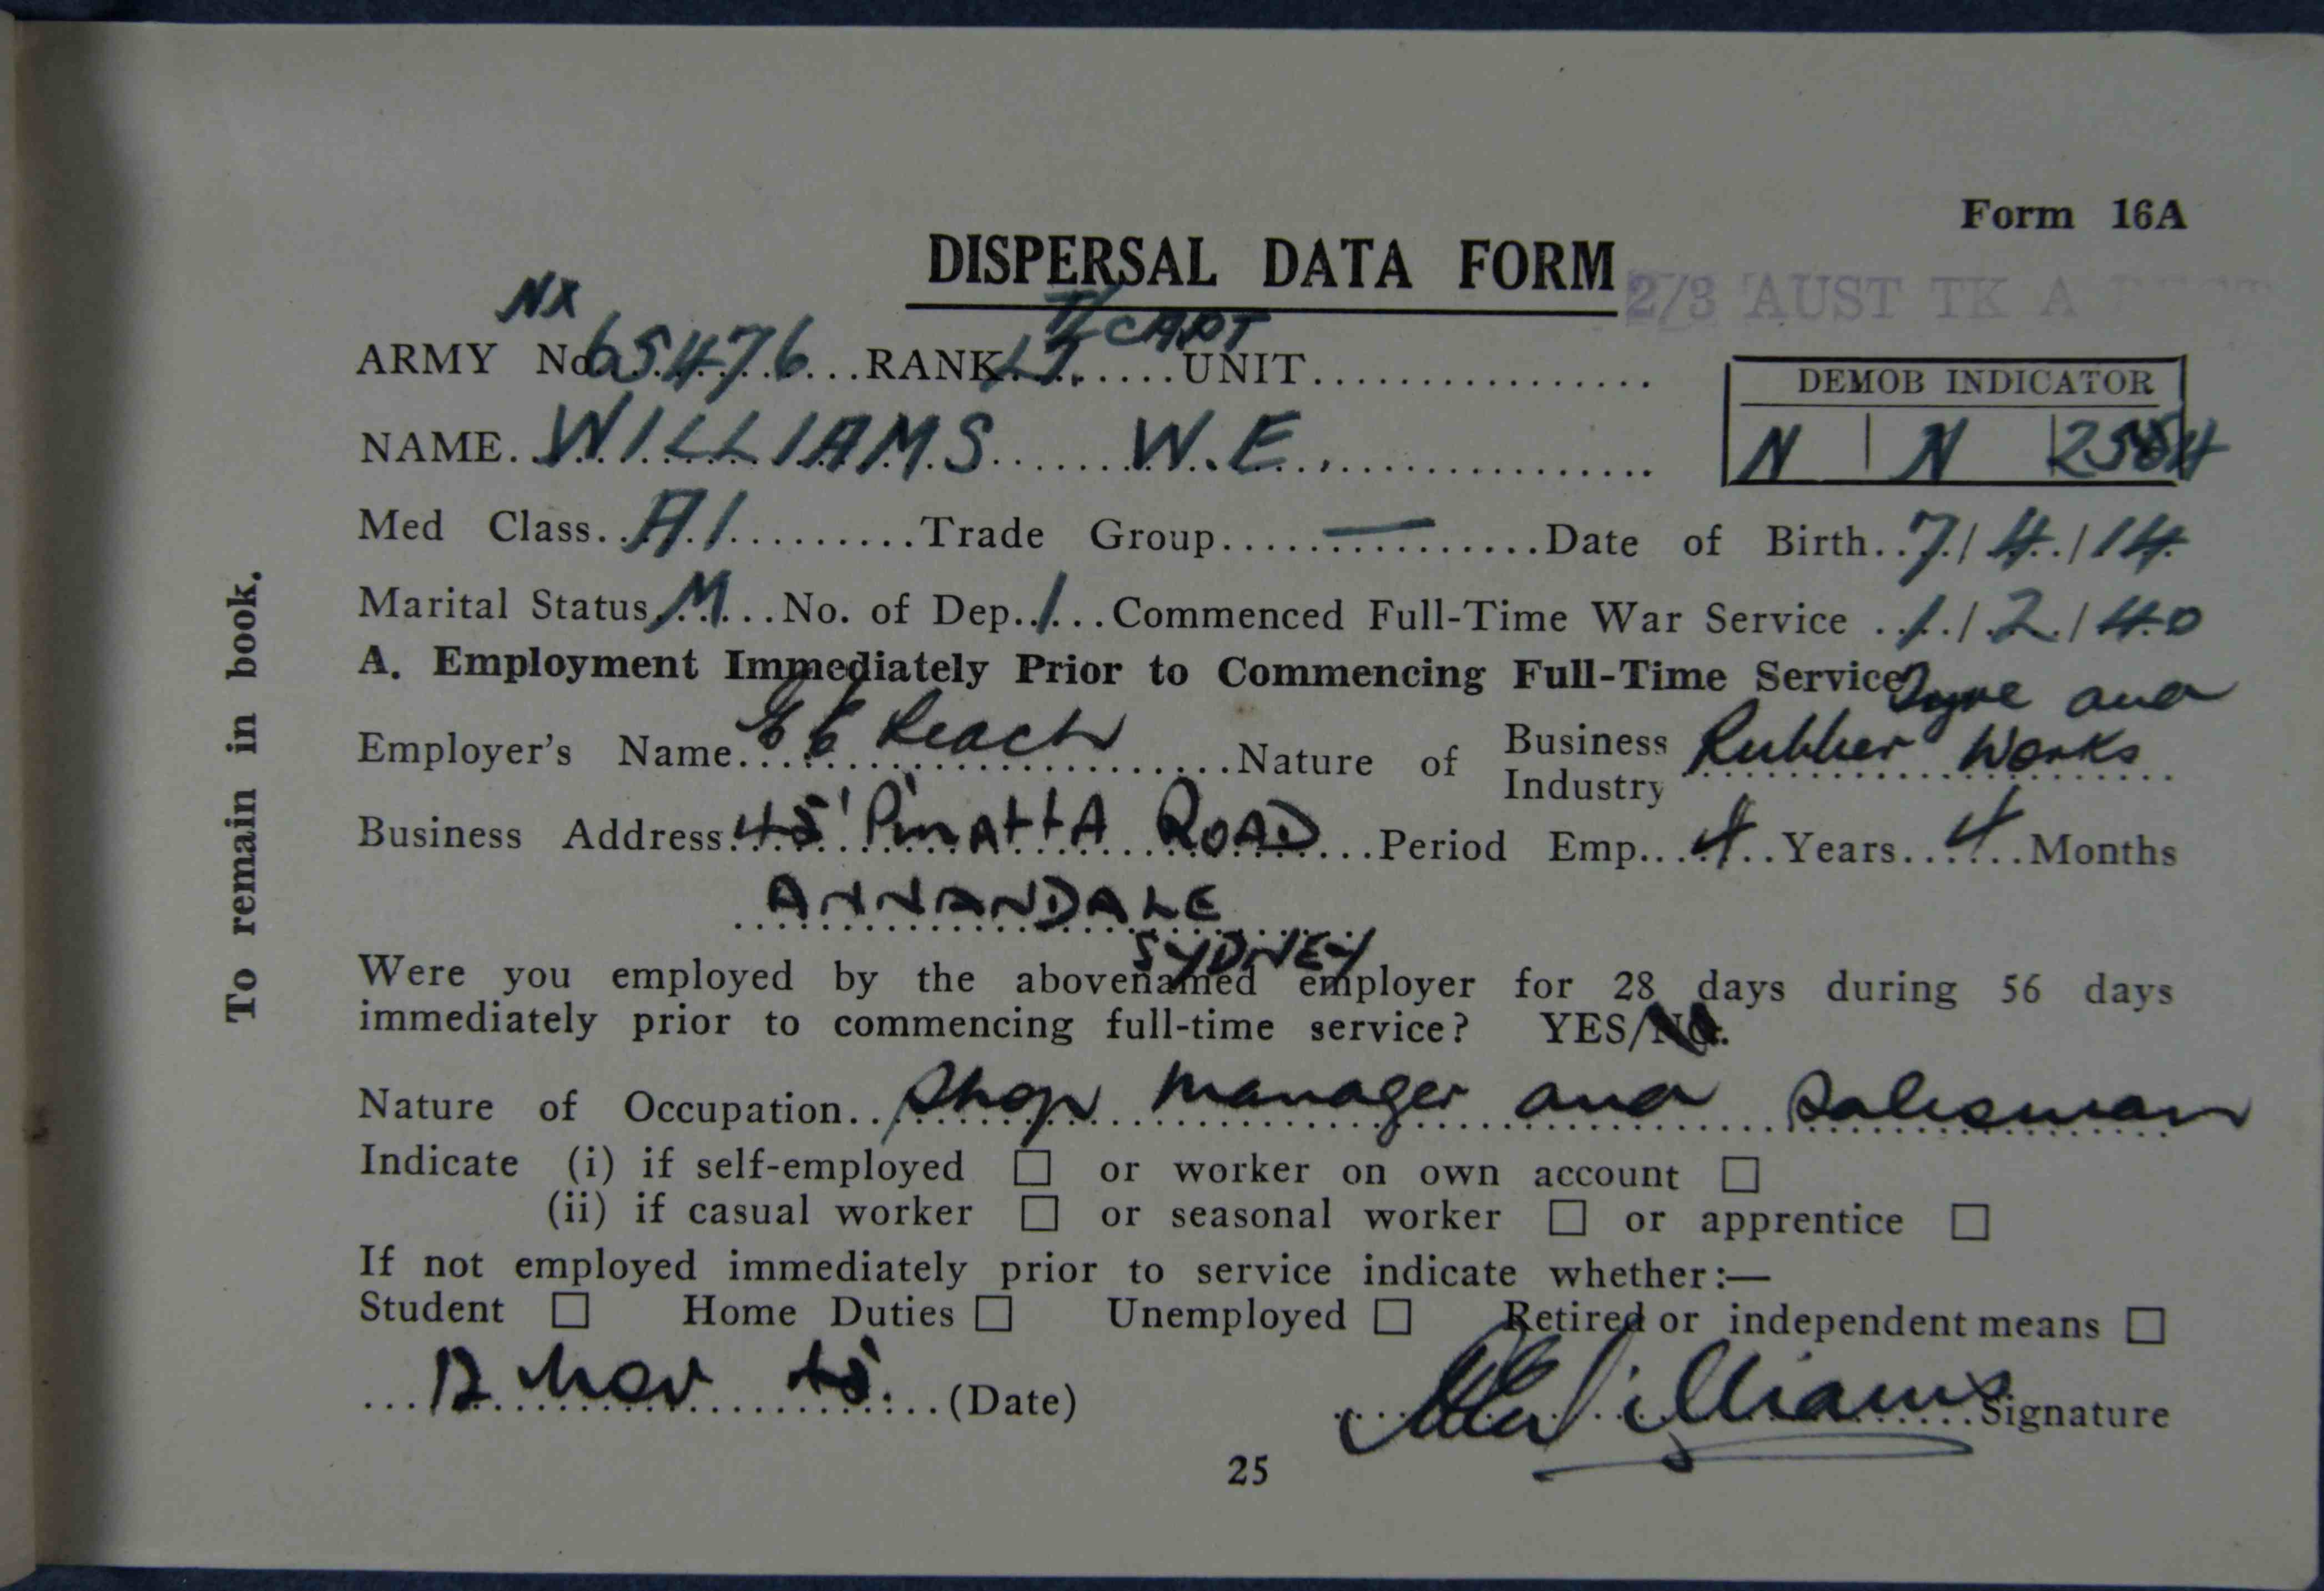 Form 16A
DISPERSAL DATA FORM
2/3 AUST TK A
NX
T/CAPT
ARMY No. 65476 RANK LT. UNIT
DEMOB INDICATOR
NAME. WILLIAMS W.E.
N | N |
Med Class A1 Trade Group — Date of Birth 7/4/14
Marital Status M No. of Dep. 1 Commenced Full-Time War Service 1/2/40
A. Employment Immediately Prior to Commencing Full-Time Service
Tyre and
Employer's Name Leach Nature of Business Industry Rubber Works
Business Address 45 ROAD Period Emp. 4 Years 4 Months
ANNANDALE
SYDNEY
Were you employed by the abovenamed employer for 28 days during 56 days
immediately prior to commencing full-time service? YES/NO.
Nature of Occupation Shop manager and Salesman
Indicate (i) if self-employed □ or worker on own account □
(ii) if casual worker □ or seasonal worker □ or apprentice □
If not employed immediately prior to service indicate whether:—
Student □ Home Duties □ Unemployed □ Retired or independent means □
12 Nov 45. (Date) WEWilliams Signature
25
To remain in book.